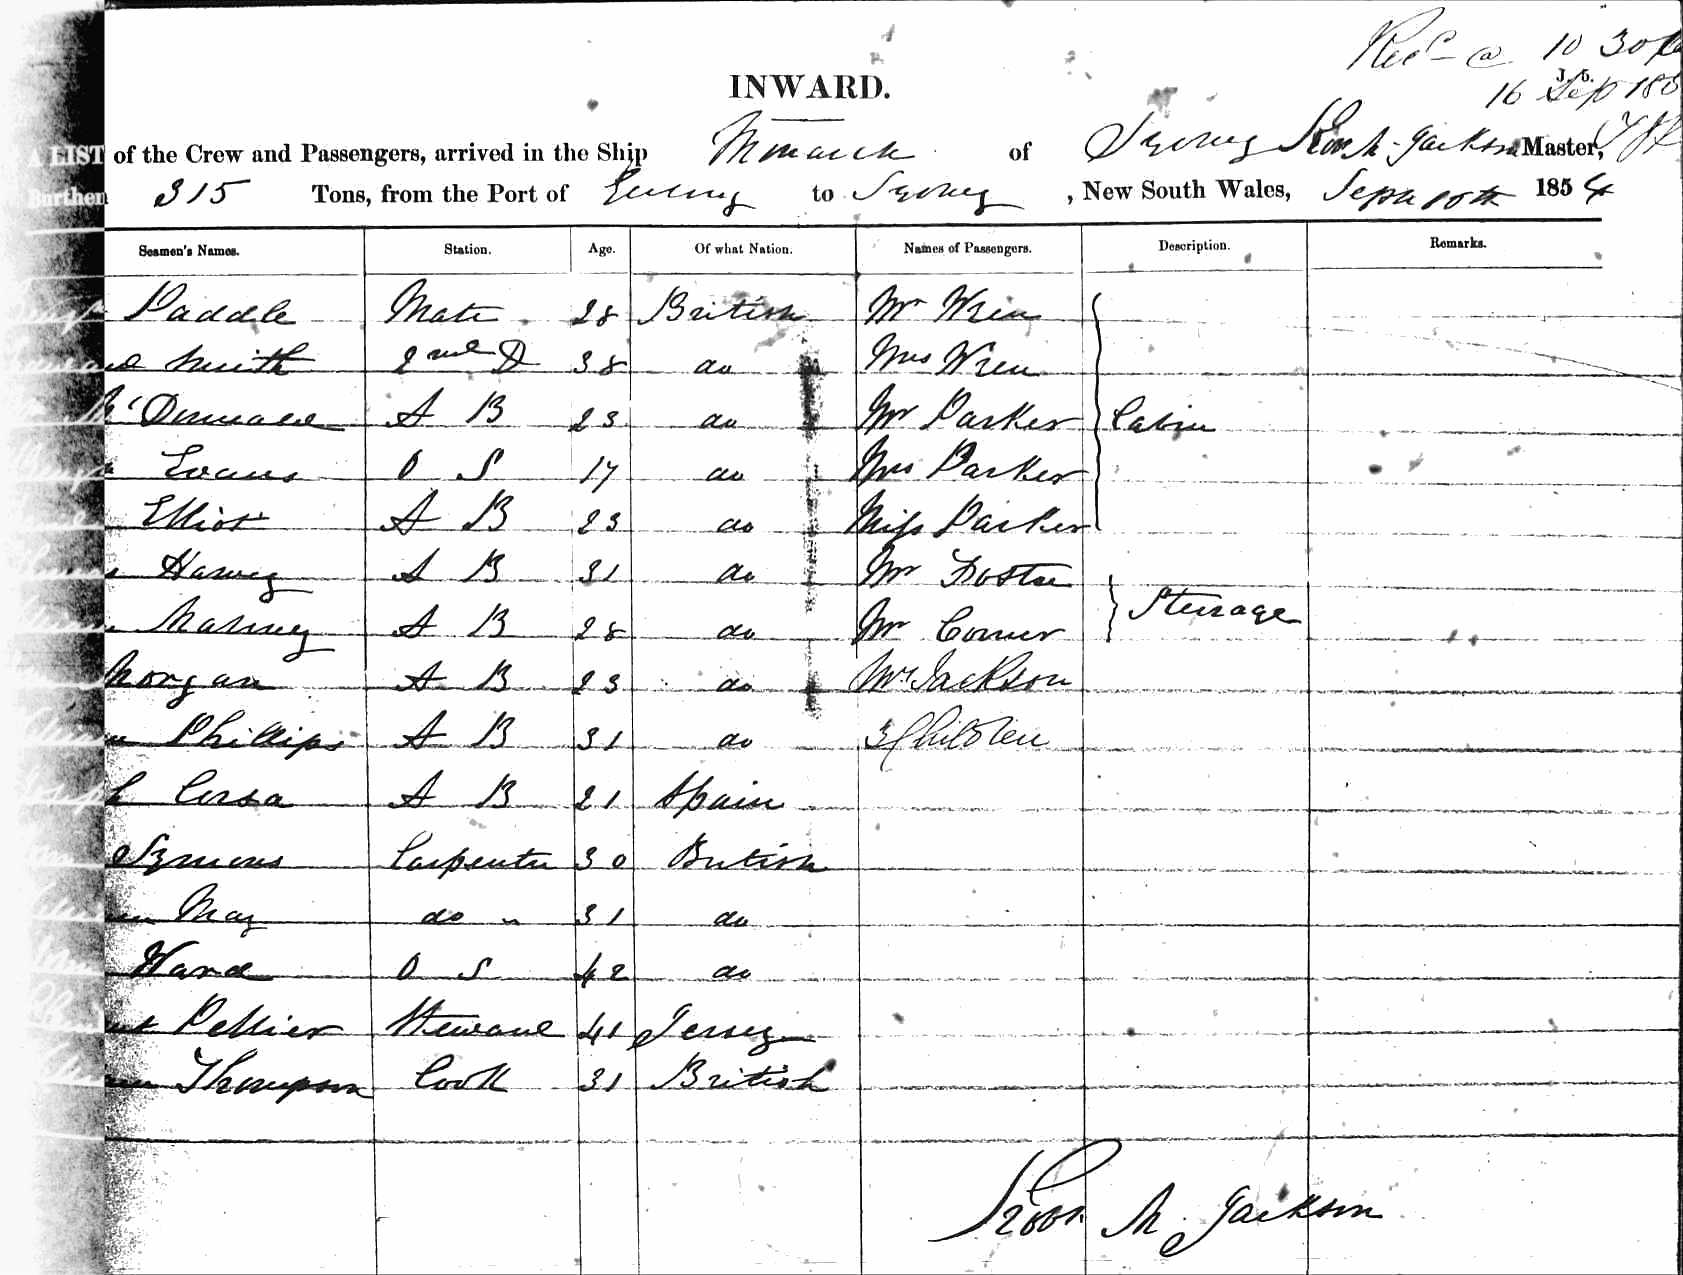 Recd @ 10 30
16 Sep 185
J. b.
INWARD.
A LIST of the Crew and Passengers, arrived in the Ship Monarch of Sydney Robt M. Jackson Master,
Burthen 315 Tons, from the Port of to Sydney, New South Wales, Septr 15th 1854
Seamen's Names. Station. Age. Of what Nation. Names of Passengers. Description. Remarks.
Paddle Mate 28 British Mr Wren
Smith 2nd D 38 do Mrs Wren
McDonald A B 23 do Mr Parker Cabin
Evans O S 17 do Mrs Parker
Elliot A B 23 do Miss Parker
Harvey A B 31 do Mr Foster
Steerage
Mahney A B 28 do Mr Comer
Morgan A B 23 do Mrs Jackson
Phillips A B 31 do 3 Children
Corsa A B 21 Spain
Symons Carpenter 30 British
May do 31 do
Ward O S 42 do
Pellier Steward 41 Jersey
Thompson Cook 31 British
Robt M. Jackson